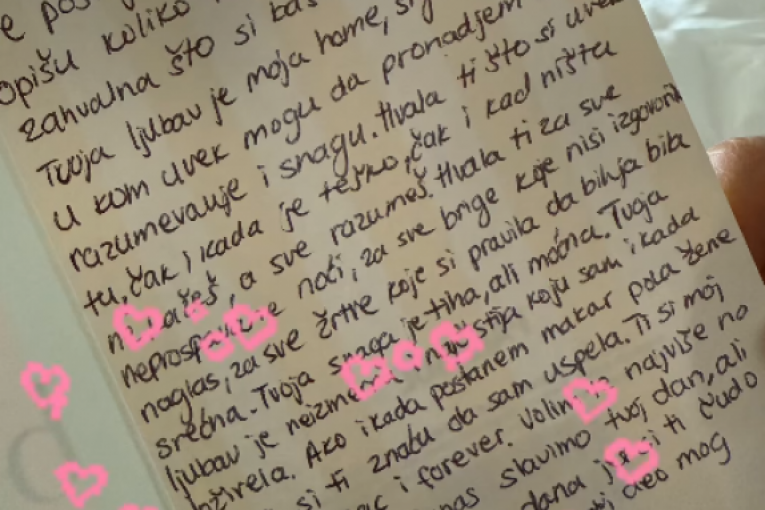 e
opišu koliko
zahvalna što si baš
Tvoja ljubav je moja home,
u kom uvek mogu da pronadjem
razumevanje i snagu. Hvala ti što si uvek
tu, čak i kada je teško, čak i kad ništa
a sve razumeš. Hvala ti za sve
noći, za sve brige koje nisi izgovorila
naglas, za sve žrtve koje si pravila da bih ja bila
srećna. Tvoja snaga je tiha, ali moćna. Tvoja
ljubav je koju sam ikada
Ako ikada postanem makar pola žene
si ti znaću da sam uspela. Ti si moj
i forever. Volim najviše no
slavimo tvoj dan, ali
dana ti čudo
deo mog